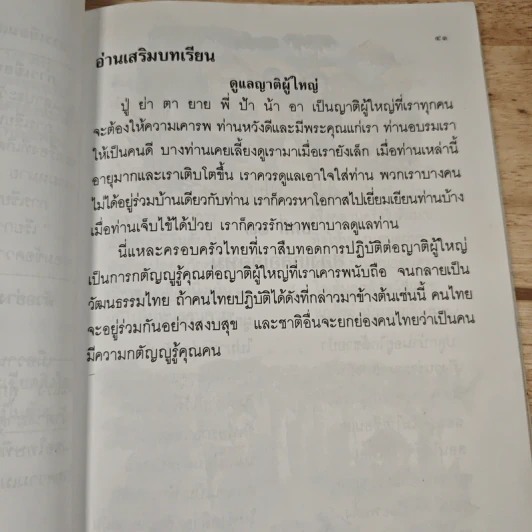 ๔๑
อ่านเสริมบทเรียน
ดูแลญาติผู้ใหญ่
ปู่ ย่า ตา ยาย พี่ ป้า น้า อา เป็นญาติผู้ใหญ่ที่เราทุกคน
จะต้องให้ความเคารพ ท่านหวังดีและมีพระคุณแก่เรา ท่านอบรมเรา
ให้เป็นคนดี บางท่านเคยเลี้ยงดูเรามาเมื่อเรายังเล็ก เมื่อท่านเหล่านี้
อายุมากและเราเติบโตขึ้น เราควรดูแลเอาใจใส่ท่าน พวกเราบางคน
ไม่ได้อยู่ร่วมบ้านเดียวกับท่าน เราก็ควรหาโอกาสไปเยี่ยมเยียนท่านบ้าง
เมื่อท่านเจ็บไข้ได้ป่วย เราก็ควรรักษาพยาบาลดูแลท่าน
นี่แหละครอบครัวไทยที่เราสืบทอดการปฏิบัติต่อญาติผู้ใหญ่
เป็นการกตัญญูรู้คุณต่อญาติผู้ใหญ่ที่เราเคารพนับถือ จนกลายเป็น
วัฒนธรรมไทย ถ้าคนไทยปฏิบัติได้ดังที่กล่าวมาข้างต้นเช่นนี้ คนไทย
จะอยู่ร่วมกันอย่างสงบสุข และชาติอื่นจะยกย่องคนไทยว่าเป็นคน
มีความกตัญญูรู้คุณคน